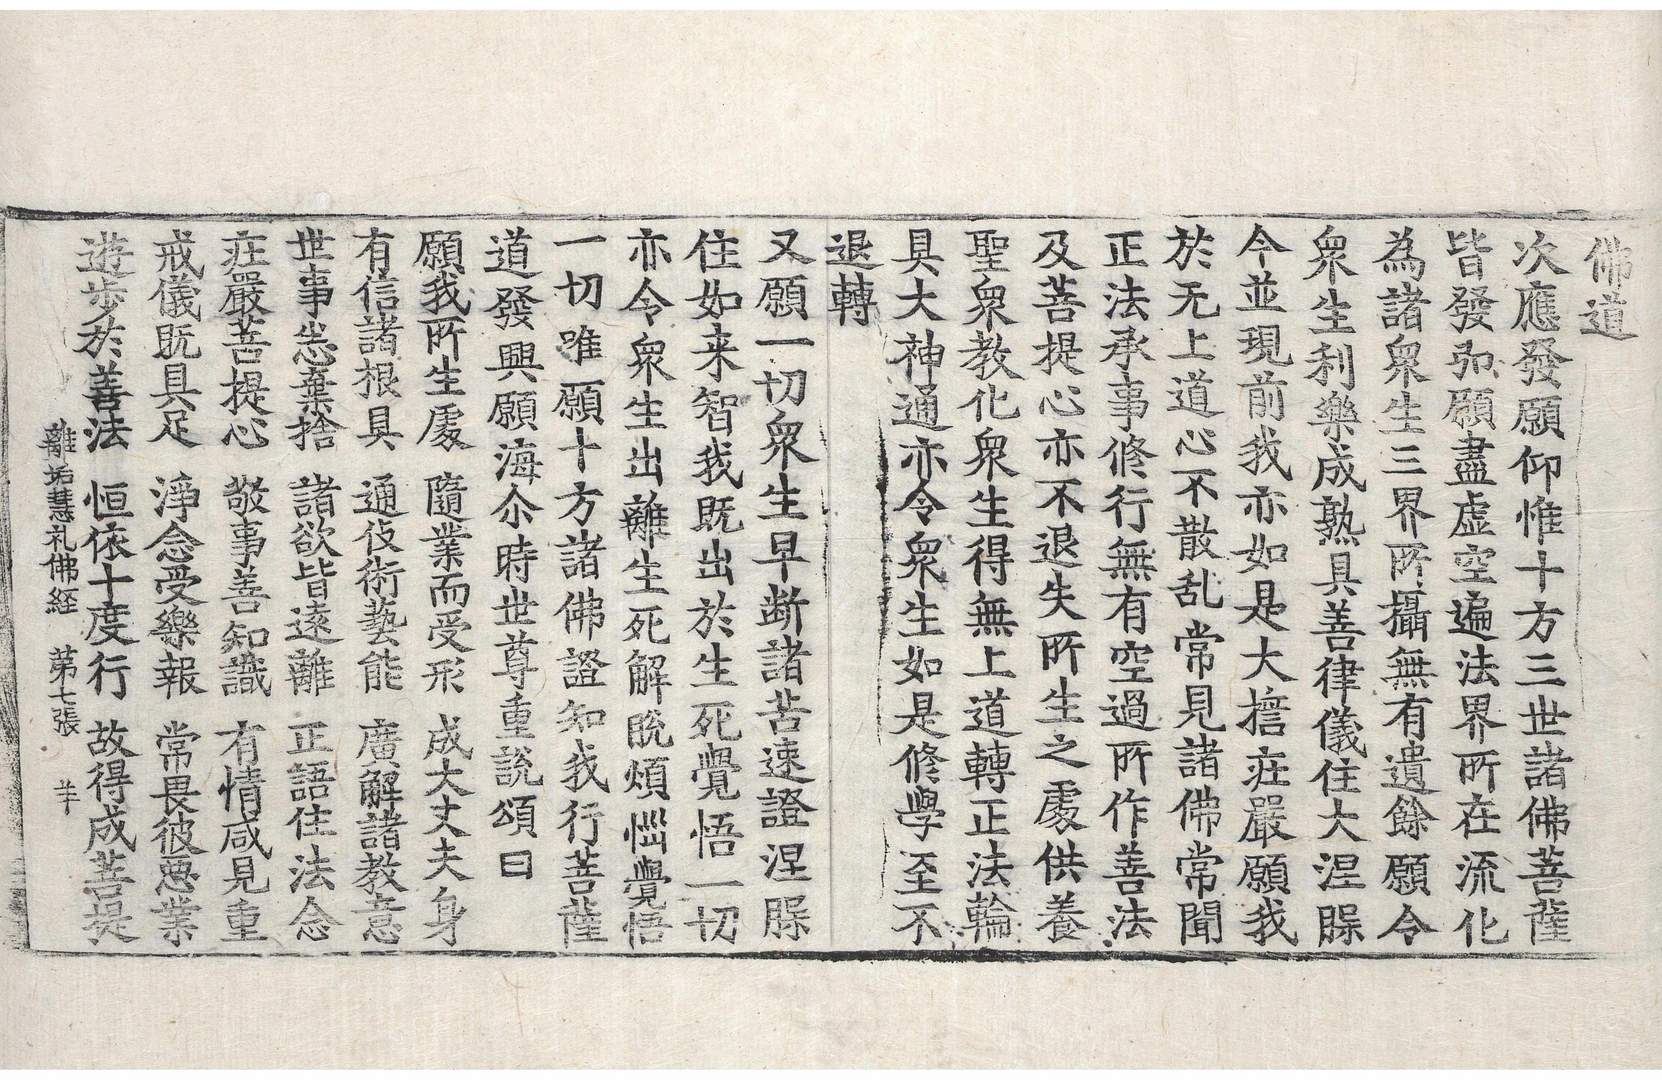 佛道
次應發願仰惟十方三世諸佛菩薩
皆發弘願盡虛空遍法界所在流化
為諸衆生三界所攝無有遺餘願令
衆生利樂成熟具善律儀住大涅槃
今並現前我亦如是大擔莊嚴願我
於无上道心不散乱常見諸佛常聞
正法承事修行無有空過所作善法
及菩提心亦不退失所生之處供養
聖衆教化衆生得無上道轉正法輪
具大神通亦令衆生如是修學至不
退轉
又願一切衆生早断諸苦速證涅槃
住如来智我既出於生死覺悟一切
亦令衆生出離生死解脫煩惱覺悟
一切唯願十方諸佛證知我行菩薩
道發興願海尒時世尊重說頌曰
願我所生處 隨業而受形 成大丈夫身
有信諸根具 通伎術藝能 廣解諸教意
世事悉棄捨 諸欲皆遠離 正語住法念
莊嚴菩提心 敬事善知識 有情咸見重
戒儀既具足 淨念受樂報 常畏彼惡業
遊步於善法 恒依十度行 故得成菩提
離垢慧礼佛経 第七張 羊